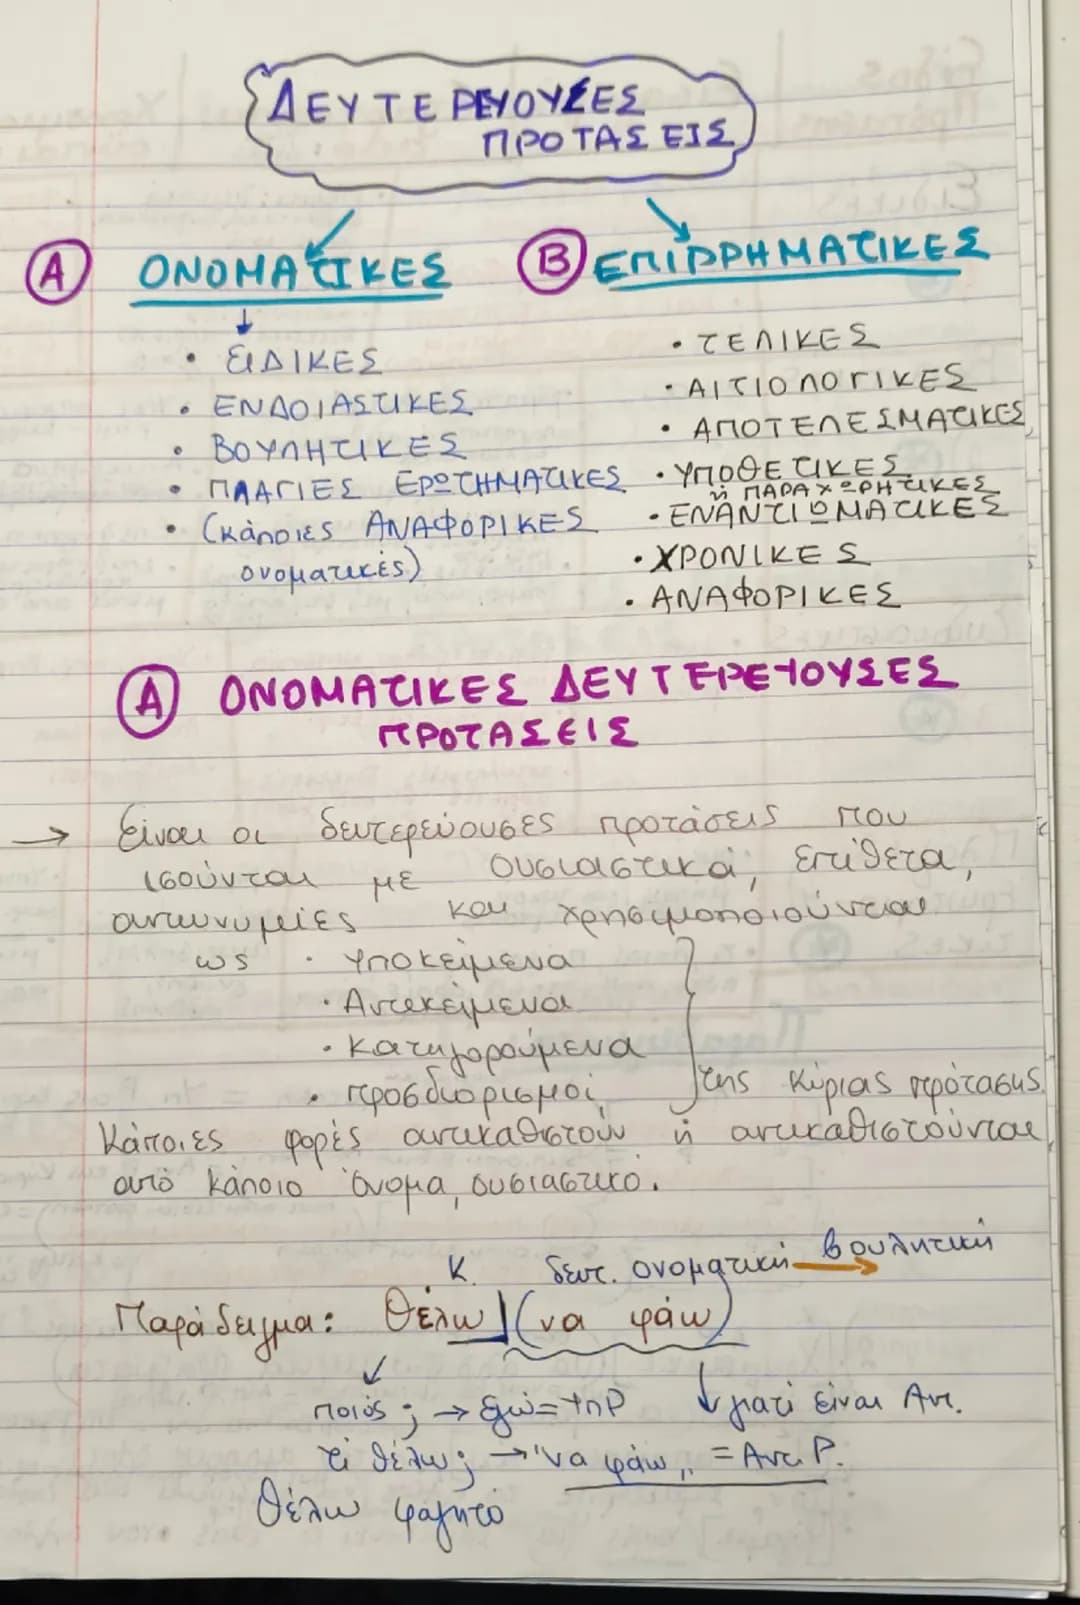 ΔΕΥΤΕΡΕΥΟΥΣΕΣ
ΠΡΟΤΑΣΕΙΣ
Α ΟΝΟΜΑΤΙΚΕΣ
• ΕΙΔΙΚΕΣ
• ΕΝΔΟΙΑΣΤΙΚΕΣ
• ΒΟΥΛΗΤΙΚΕΣ
• ΠΛΑΓΙΕΣ ΕΡΩΤΗΜΑΤΙΚΕΣ
• (κάποιες ΑΝΑΦΟΡΙΚΕΣ
ονοματικές)
Β ΕΠΙΡΡΗΜΑΤΙΚΕΣ
• ΤΕΛΙΚΕΣ
• ΑΙΤΙΟΛΟΓΙΚΕΣ
• ΑΠΟΤΕΛΕΣΜΑΤΙΚΕΣ
• ΥΠΟΘΕΤΙΚΕΣ
ή ΠΑΡΑΧΩΡΗΤΙΚΕΣ
• ΕΝΑΝΤΙΩΜΑΤΙΚΕΣ
• ΧΡΟΝΙΚΕΣ
• ΑΝΑΦΟΡΙΚΕΣ
Α ΟΝΟΜΑΤΙΚΕΣ ΔΕΥΤΕΡΕΥΟΥΣΕΣ
ΠΡΟΤΑΣΕΙΣ
→ Είναι οι δευτερεύουσες προτάσεις που
ισούνται με ουσιαστικά, επίθετα,
αντωνυμίες και χρησιμοποιούνται
ως • Υποκείμενα
• Αντικείμενα
• Κατηγορούμενα
• προσδιορισμοί } της κύριας πρότασης.
Κάποιες φορές αντικαθιστούν ή αντικαθιστούνται
από κάποιο όνομα, ουσιαστικό.
Κ. δευτ. ονοματική → βουλητική
Παράδειγμα: Θέλω (να φάω)
ποιός; → εγώ = Υπ Ρ ↓ γιατί είναι Αντ.
τι θέλω; → "να φάω" = Αντ. Ρ.
Θέλω φαγητό